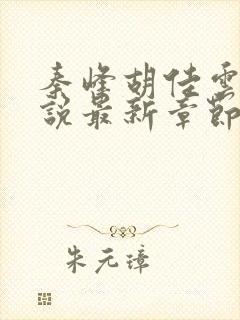 秦峰胡佳雲
說最新章節
朱元璋